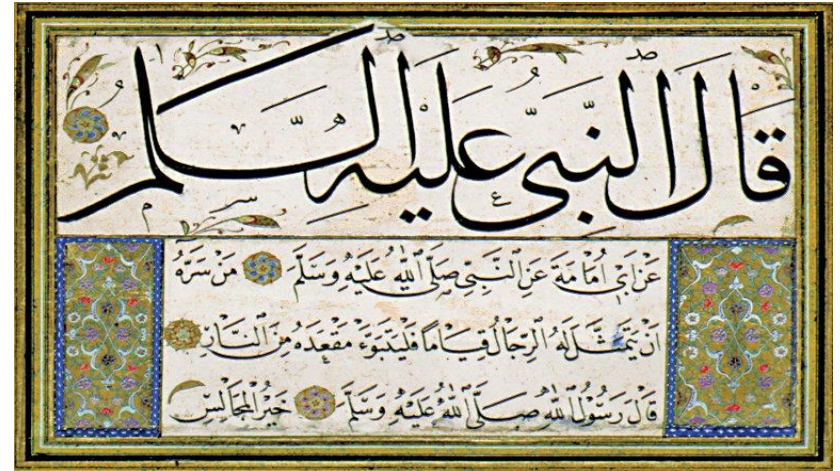 قَالَ النَّبِيُّ عَلَيْهِ السَّلَام
عَنْ اَبِي اُمَامَةَ عَنِ النَّبِيِّ صَلَّى اللّٰهُ عَلَيْهِ وَسَلَّمَ مَنْ سَرَّهُ
اَنْ يَتَمَثَّلَ لَهُ الرِّجَالُ قِيَامًا فَلْيَتَبَوَّءْ مَقْعَدَهُ مِنَ النَّارِ
قَالَ رَسُولُ اللّٰهِ صَلَّى اللّٰهُ عَلَيْهِ وَسَلَّمَ خَيْرُ الْمَجَالِسِ